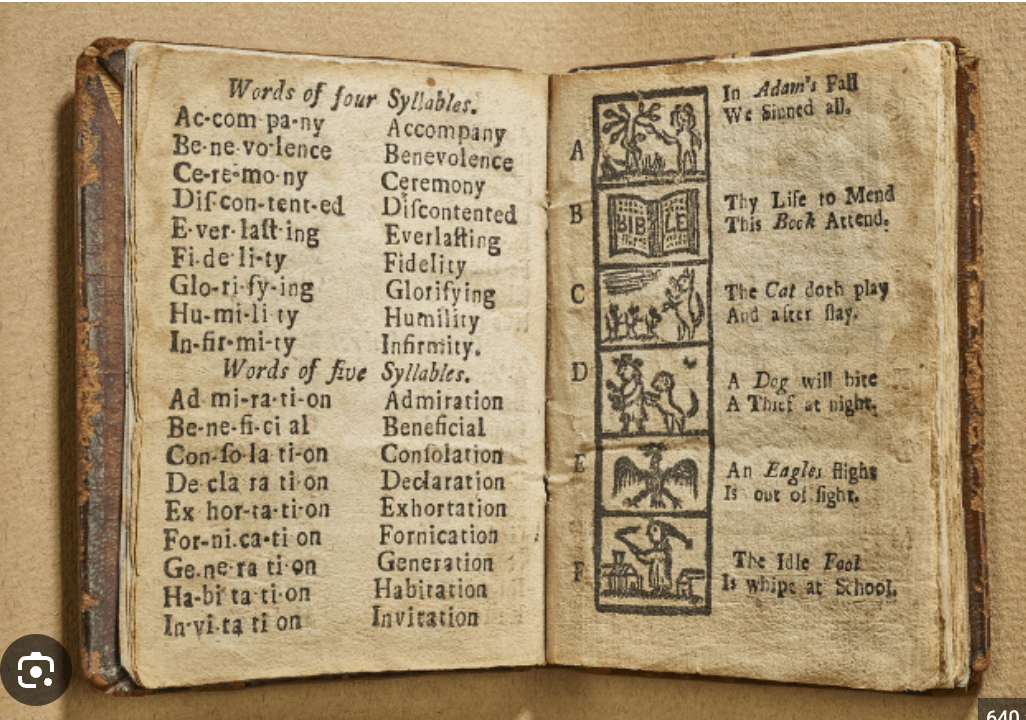 Words of four Syllables.
Ac-com pa-ny Accompany
Be-ne-vo-lence Benevolence
Ce-re-mo-ny Ceremony
Diſ-con-tent-ed Diſcontented
E-ver-laſt-ing Everlaſting
Fi-de-li-ty Fidelity
Glo-ri-fy-ing Glorifying
Hu-mi-li ty Humility
In-fir-mi-ty Infirmity.
Words of five Syllables.
Ad mi-ra-ti-on Admiration
Be-ne-fi-ci al Beneficial
Con-ſo-la ti-on Conſolation
De cla ra ti on Declaration
Ex hor-ta-ti-on Exhortation
For-ni.ca-ti on Fornication
Ge.ne-ra ti-on Generation
Ha-bi ta-ti-on Habitation
In-vi-ta ti on Invitation
A
In Adam's Fall
We Sinned all.
B
BIBLE
Thy Life to Mend
This Book Attend.
C
The Cat doth play
And after ſlay.
D
A Dog will bite
A Thief at night.
E
An Eagles flight
Is out of ſight.
F
The Idle Fool
Is whipt at School.
640